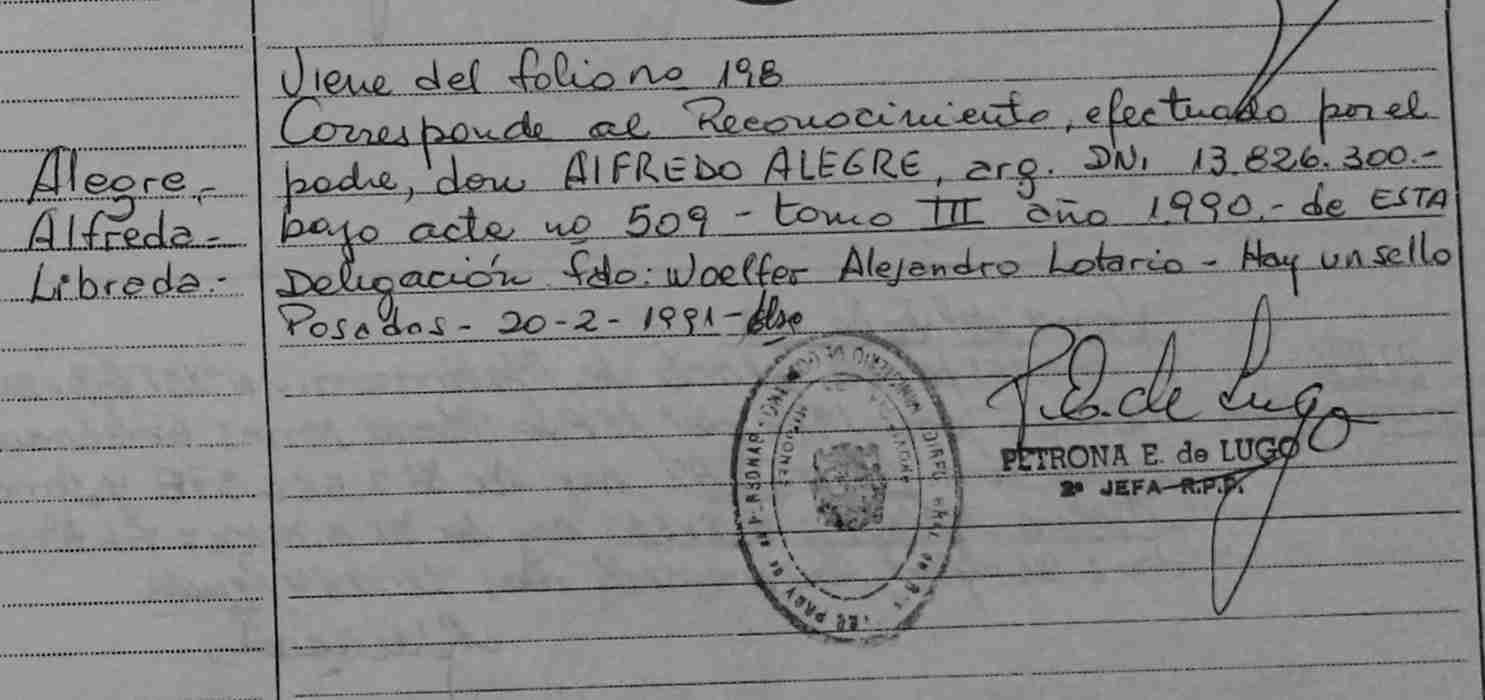 Viene del folio no 198
Corresponde al Reconocimiento, efectuado por el
padre, don AlFREDO ALEGRE, arg. DNi 13.826.300.-
bajo acta no 509 - tomo III año 1990.- de ESTA
Delegación fdo: Woelfer Alejandro Lotario - Hay un sello
Posadas - 20-2-1991-
Alegre,-
Alfreda-
Libreda.-
P.E. de Lugo
PETRONA E. de LUGO
2ª JEFA R.P.P.
MISIONES